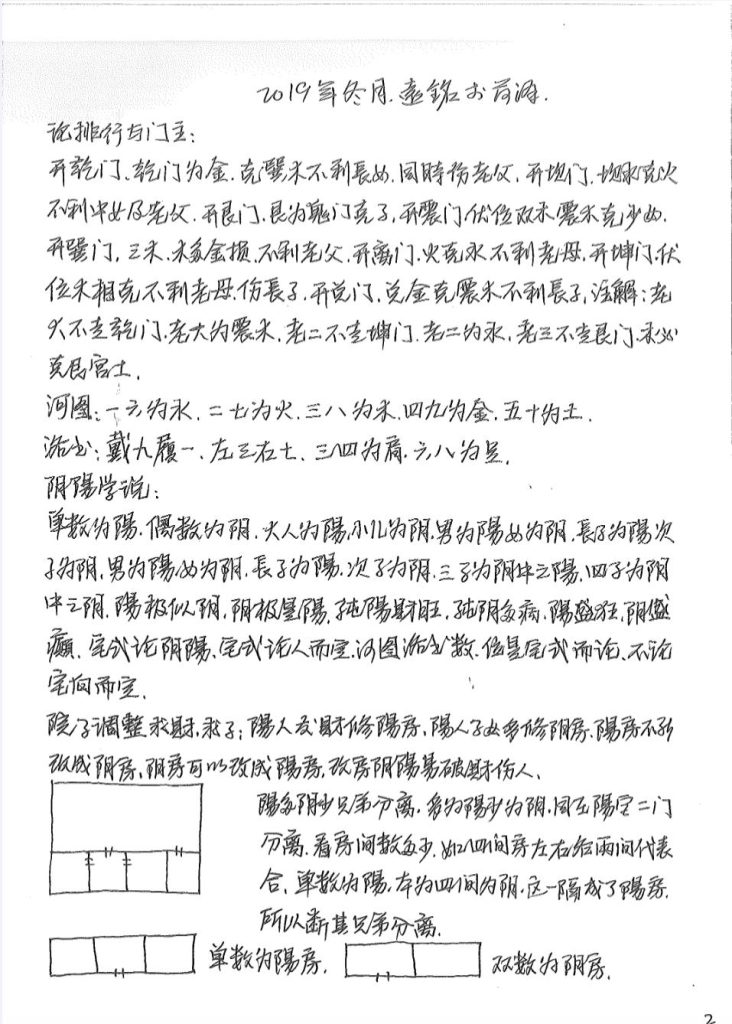 2019年冬月.
论排行与门主:
开乾门、乾门为金.克巽木不利長女.同時伤老父.开坎门.坎水克火
不利中女及老父.开艮门.艮为鬼门克子,开震门伏位双木震木克少女.
开巽门,三木.木多金损.不利老父.开离门.火克水不利老母.开坤门.伏
位木相克不利老母.伤長子.开兑门,兑金克震木不利長子,注解:老
大不走乾门.老大为震木.老二不走坤门.老二为水.老三不走艮门.木必
克艮宫土.
河图:一六为水.二七为火.三八为木.四九为金.五十为土.
洛书:戴九履一.左三右七.三四为肩.六八为足.
阴陽学说:
单数为陽.偶数为阴.大人为陽,小儿为阴.男为陽女为阴.長子为陽次
子为阴.男为陽女为阴.長子为陽.次子为阴.三子为阴中之陽.四子为阴
中之阴.陽极似阴,阴极是陽.纯陽財旺.纯阴多病.陽盛狂.阴盛
癫.宅式论阴陽、宅式论人而定.河图洛书数.位是宅式而论、不论
宅向而定.
院子调整求財,求子:陽人发財修陽房,陽人子女多修阴房.陽房不能
改成阴房,阴房可以改成陽房,改房阴陽易破財伤人.
陽多阴少兄弟分离.多为陽少为阴.同在陽宅二门
分离.看房间数多少.如四间房左右给两间代表
合.单数为陽.本为四间为阴.这一隔成了陽房.
所以断其兄弟分离.
单数为陽房.
双数为阴房.
2